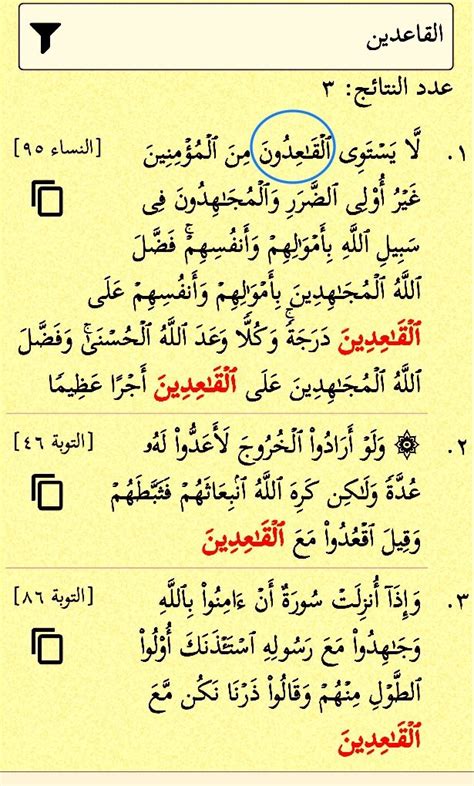 القاعدين
عدد النتائج: ٣
١. لَّا يَسْتَوِى ٱلْقَـٰعِدُونَ مِنَ ٱلْمُؤْمِنِينَ [النساء ٩٥]
غَيْرُ أُو۟لِى ٱلضَّرَرِ وَٱلْمُجَـٰهِدُونَ فِى
سَبِيلِ ٱللَّهِ بِأَمْوَٰلِهِمْ وَأَنفُسِهِمْ ۚ فَضَّلَ
ٱللَّهُ ٱلْمُجَـٰهِدِينَ بِأَمْوَٰلِهِمْ وَأَنفُسِهِمْ عَلَى
ٱلْقَـٰعِدِينَ دَرَجَةً ۚ وَكُلًّا وَعَدَ ٱللَّهُ ٱلْحُسْنَىٰ ۚ وَفَضَّلَ
ٱللَّهُ ٱلْمُجَـٰهِدِينَ عَلَى ٱلْقَـٰعِدِينَ أَجْرًا عَظِيمًا
٢. ۞ وَلَوْ أَرَادُوا۟ ٱلْخُرُوجَ لَأَعَدُّوا۟ لَهُۥ [التوبة ٤٦]
عُدَّةً وَلَـٰكِن كَرِهَ ٱللَّهُ ٱنۢبِعَاثَهُمْ فَثَبَّطَهُمْ
وَقِيلَ ٱقْعُدُوا۟ مَعَ ٱلْقَـٰعِدِينَ
٣. وَإِذَآ أُنزِلَتْ سُورَةٌ أَنْ ءَامِنُوا۟ بِٱللَّهِ [التوبة ٨٦]
وَجَـٰهِدُوا۟ مَعَ رَسُولِهِ ٱسْتَـْٔذَنَكَ أُو۟لُوا۟
ٱلطَّوْلِ مِنْهُمْ وَقَالُوا۟ ذَرْنَا نَكُن مَّعَ
ٱلْقَـٰعِدِينَ